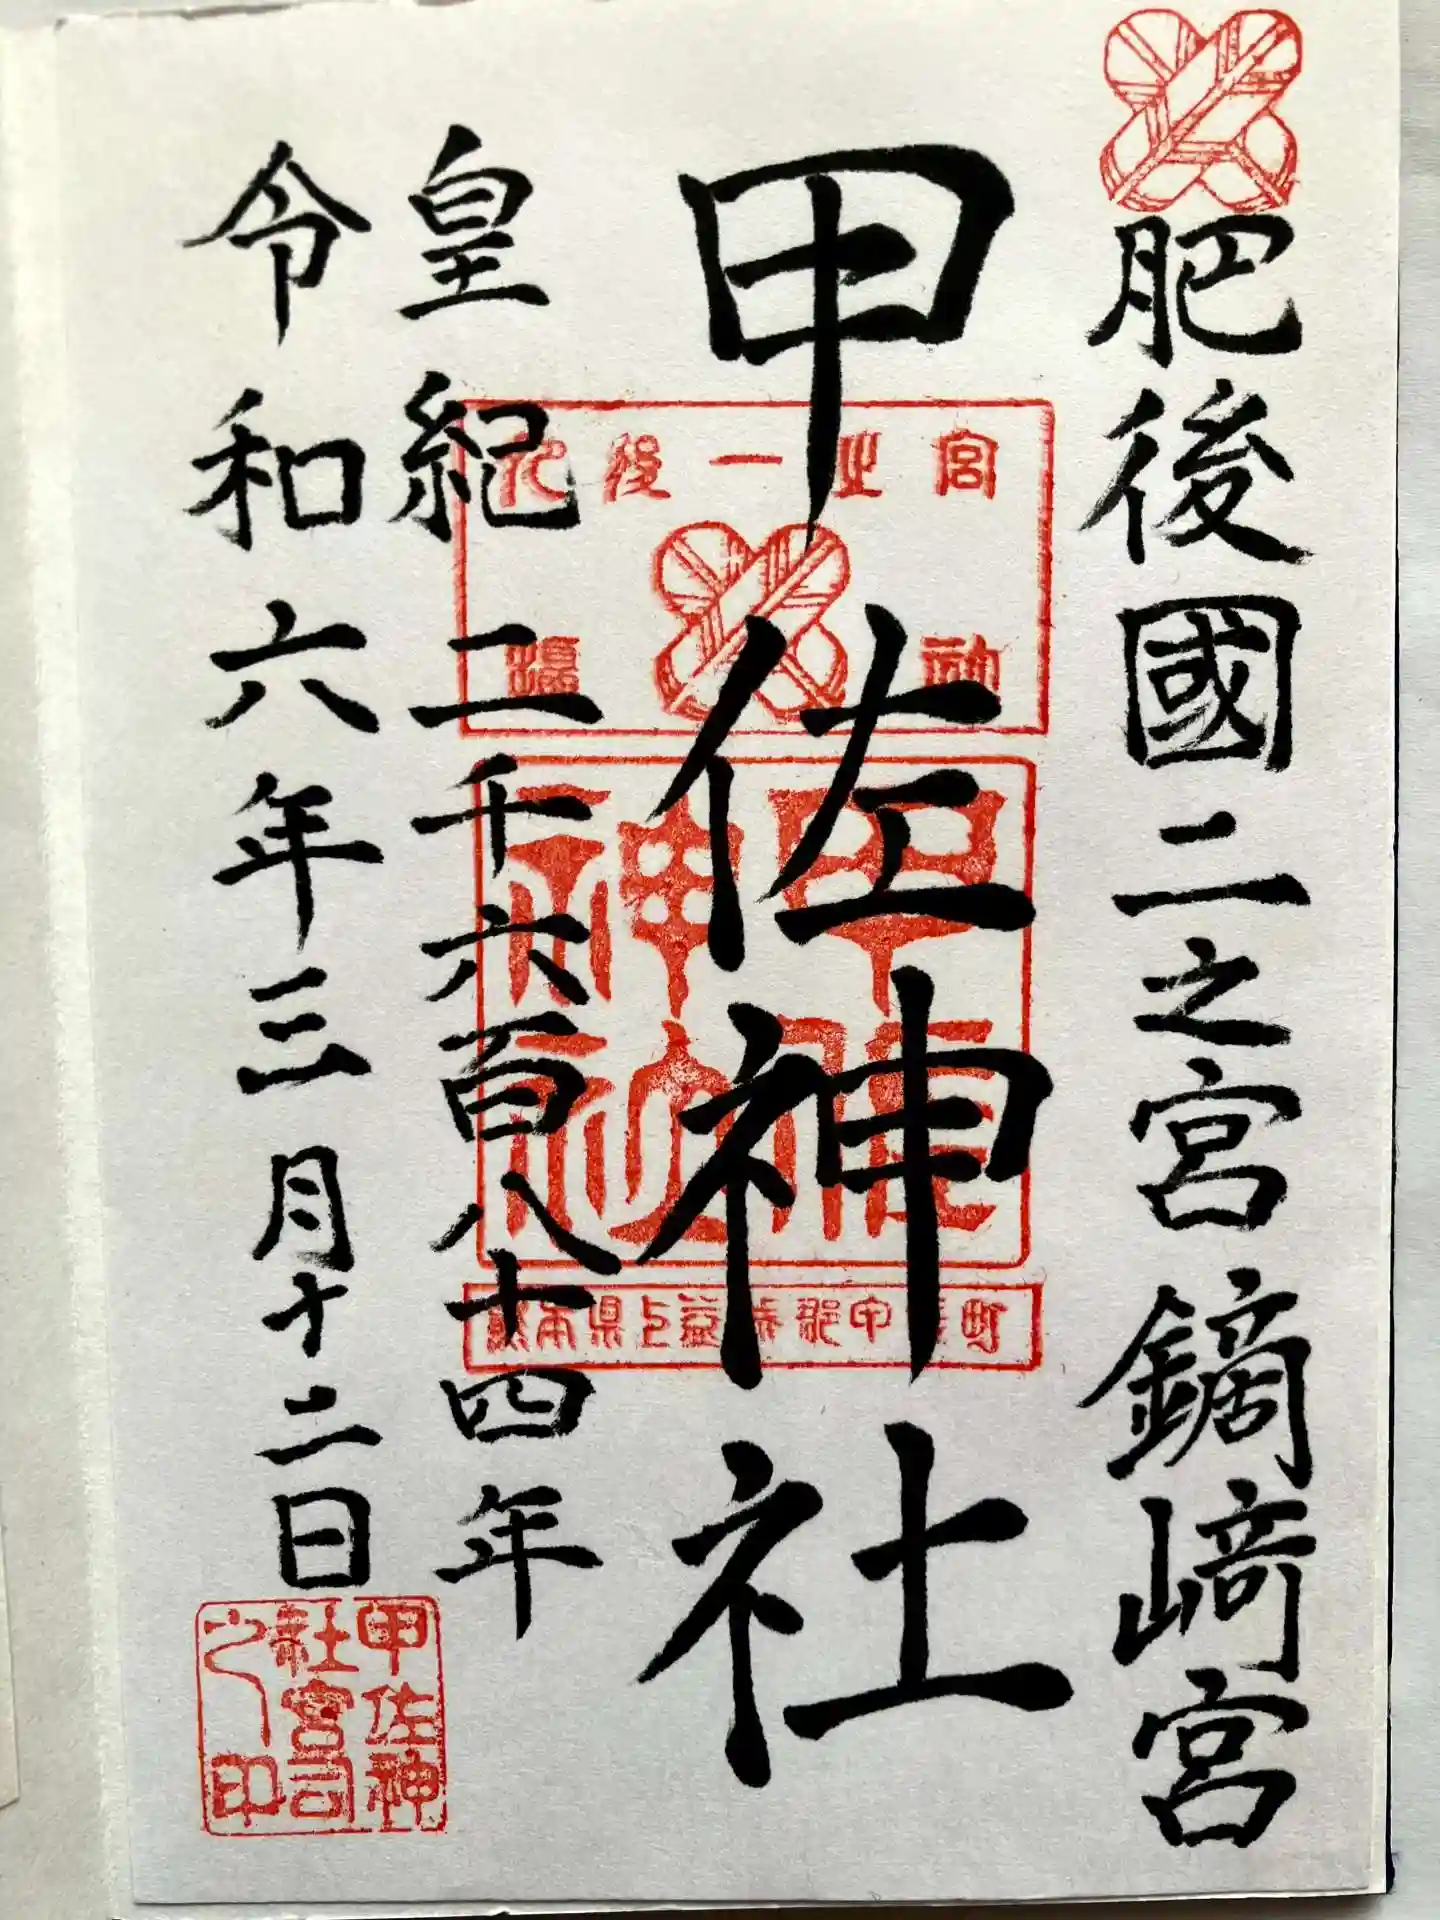 肥後國二之宮 鏑﨑宮
甲佐神社
皇紀二千六百八十四年
令和六年三月十二日
肥後一之宮
甲佐神社
熊本県上益城郡甲佐町
甲佐神
社宮司
之印